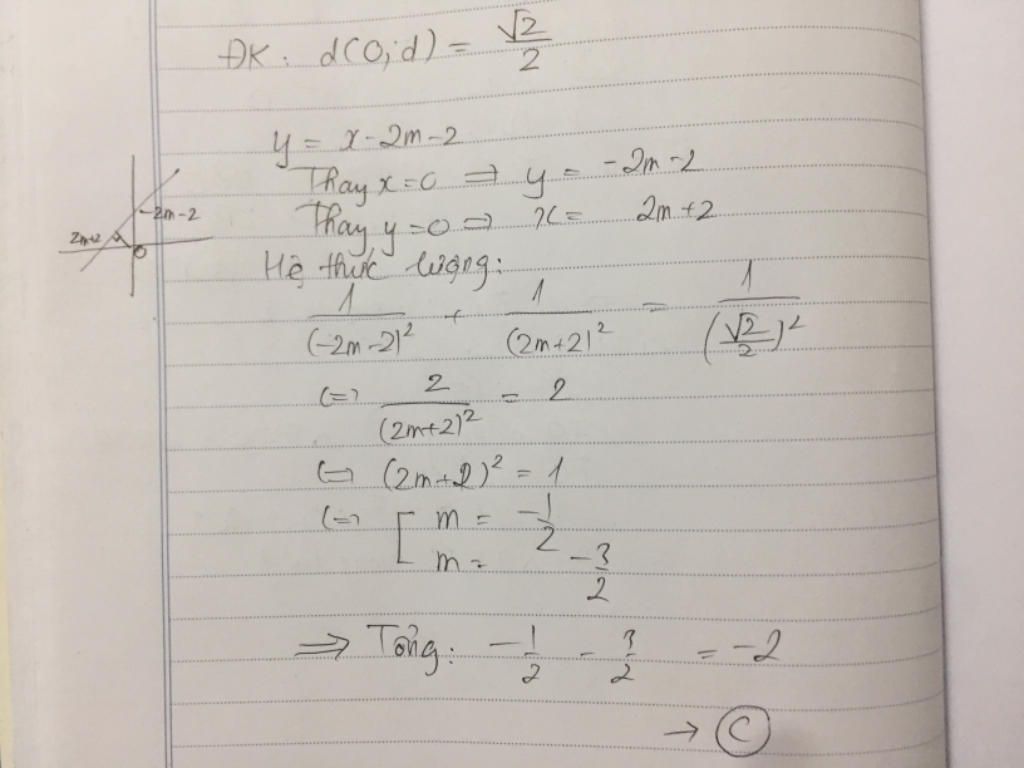 ĐK: d(O;d) = √2/2
y = x - 2m - 2
Thay x=0 ⇒ y = -2m-2
Thay y=0 ⇒ x = 2m+2
-2m-2
2m+2
O
Hệ thức lượng:
1/(-2m-2)² + 1/(2m+2)² = 1/(√2/2)²
(=) 2/(2m+2)² = 2
(=) (2m+2)² = 1
(=) [ m = -1/2
m = -3/2
⇒ Tổng: -1/2 - 3/2 = -2
→ C